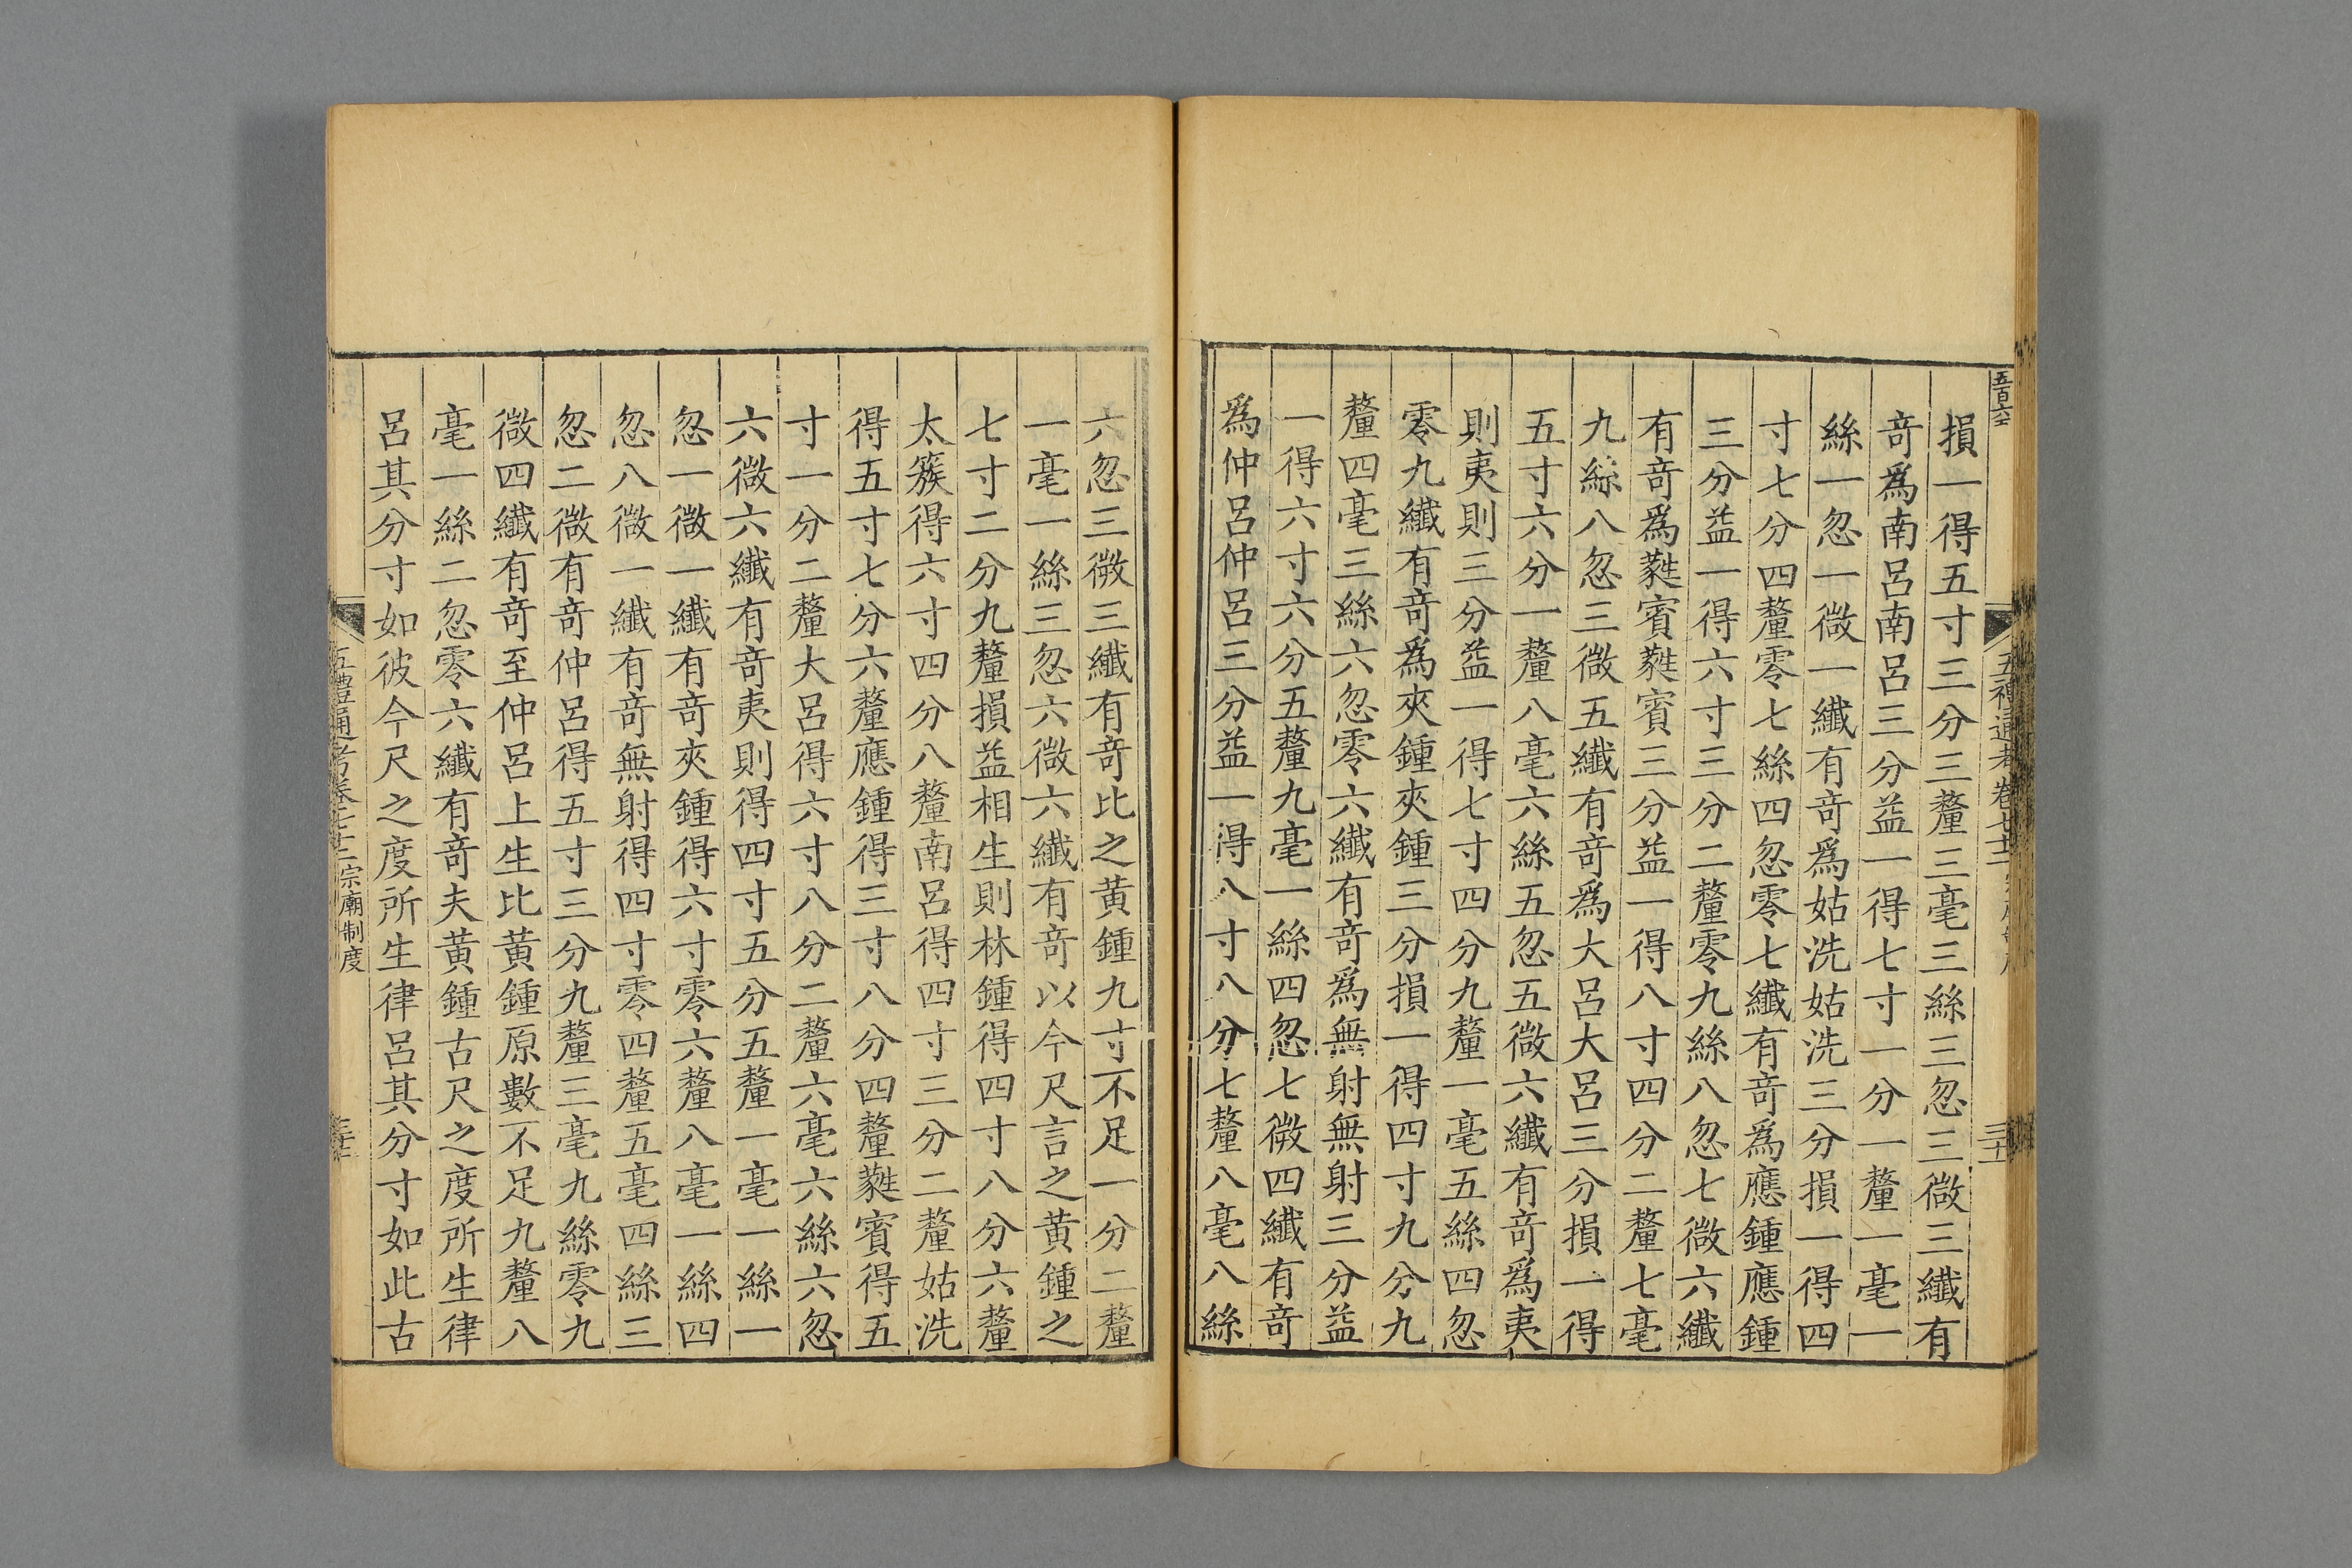 損一得五寸三分三釐三毫三絲三忽三微三纖有
奇爲南呂南呂三分益一得七寸一分一釐一毫一
絲一忽一微一纖有奇爲姑洗姑洗三分損一得四
寸七分四釐零七絲四忽零七纖有奇爲應鍾應鍾
三分益一得六寸三分二釐零九絲八忽七微六纖
有奇爲蕤賓蕤賓三分益一得八寸四分二釐七毫
九絲八忽三微五纖有奇爲大呂大呂三分損一得
五寸六分一釐八毫六絲五忽五微六纖有奇爲夷
則夷則三分益一得七寸四分九釐一毫五絲四忽
零九纖有奇爲夾鍾夾鍾三分損一得四寸九分九
釐四毫三絲六忽零六纖有奇爲無射無射三分益
一得六寸六分五釐九毫一絲四忽七微四纖有奇
爲仲呂仲呂三分益一得八寸八分七釐八毫八絲
六忽三微三纖有奇比之黄鍾九寸不足一分二釐
一毫一絲三忽六微六纖有奇以今尺言之黄鍾之
七寸二分九釐損益相生則林鍾得四寸八分六釐
太簇得六寸四分八釐南呂得四寸三分二釐姑洗
得五寸七分六釐應鍾得三寸八分四釐蕤賓得五
寸一分二釐大呂得六寸八分二釐六毫六絲六忽
六微六纖有奇夷則得四寸五分五釐一毫一絲一
忽一微一纖有奇夾鍾得六寸零六釐八毫一絲四
忽八微一纖有奇無射得四寸零四釐五毫四絲三
忽二微有奇仲呂得五寸三分九釐三毫九絲零九
微四纖有奇至仲呂上生比黄鍾原數不足九釐八
毫一絲二忽零六纖有奇夫黄鍾古尺之度所生律
呂其分寸如彼今尺之度所生律呂其分寸如此古
五禮通考卷七十二
宗廟制度